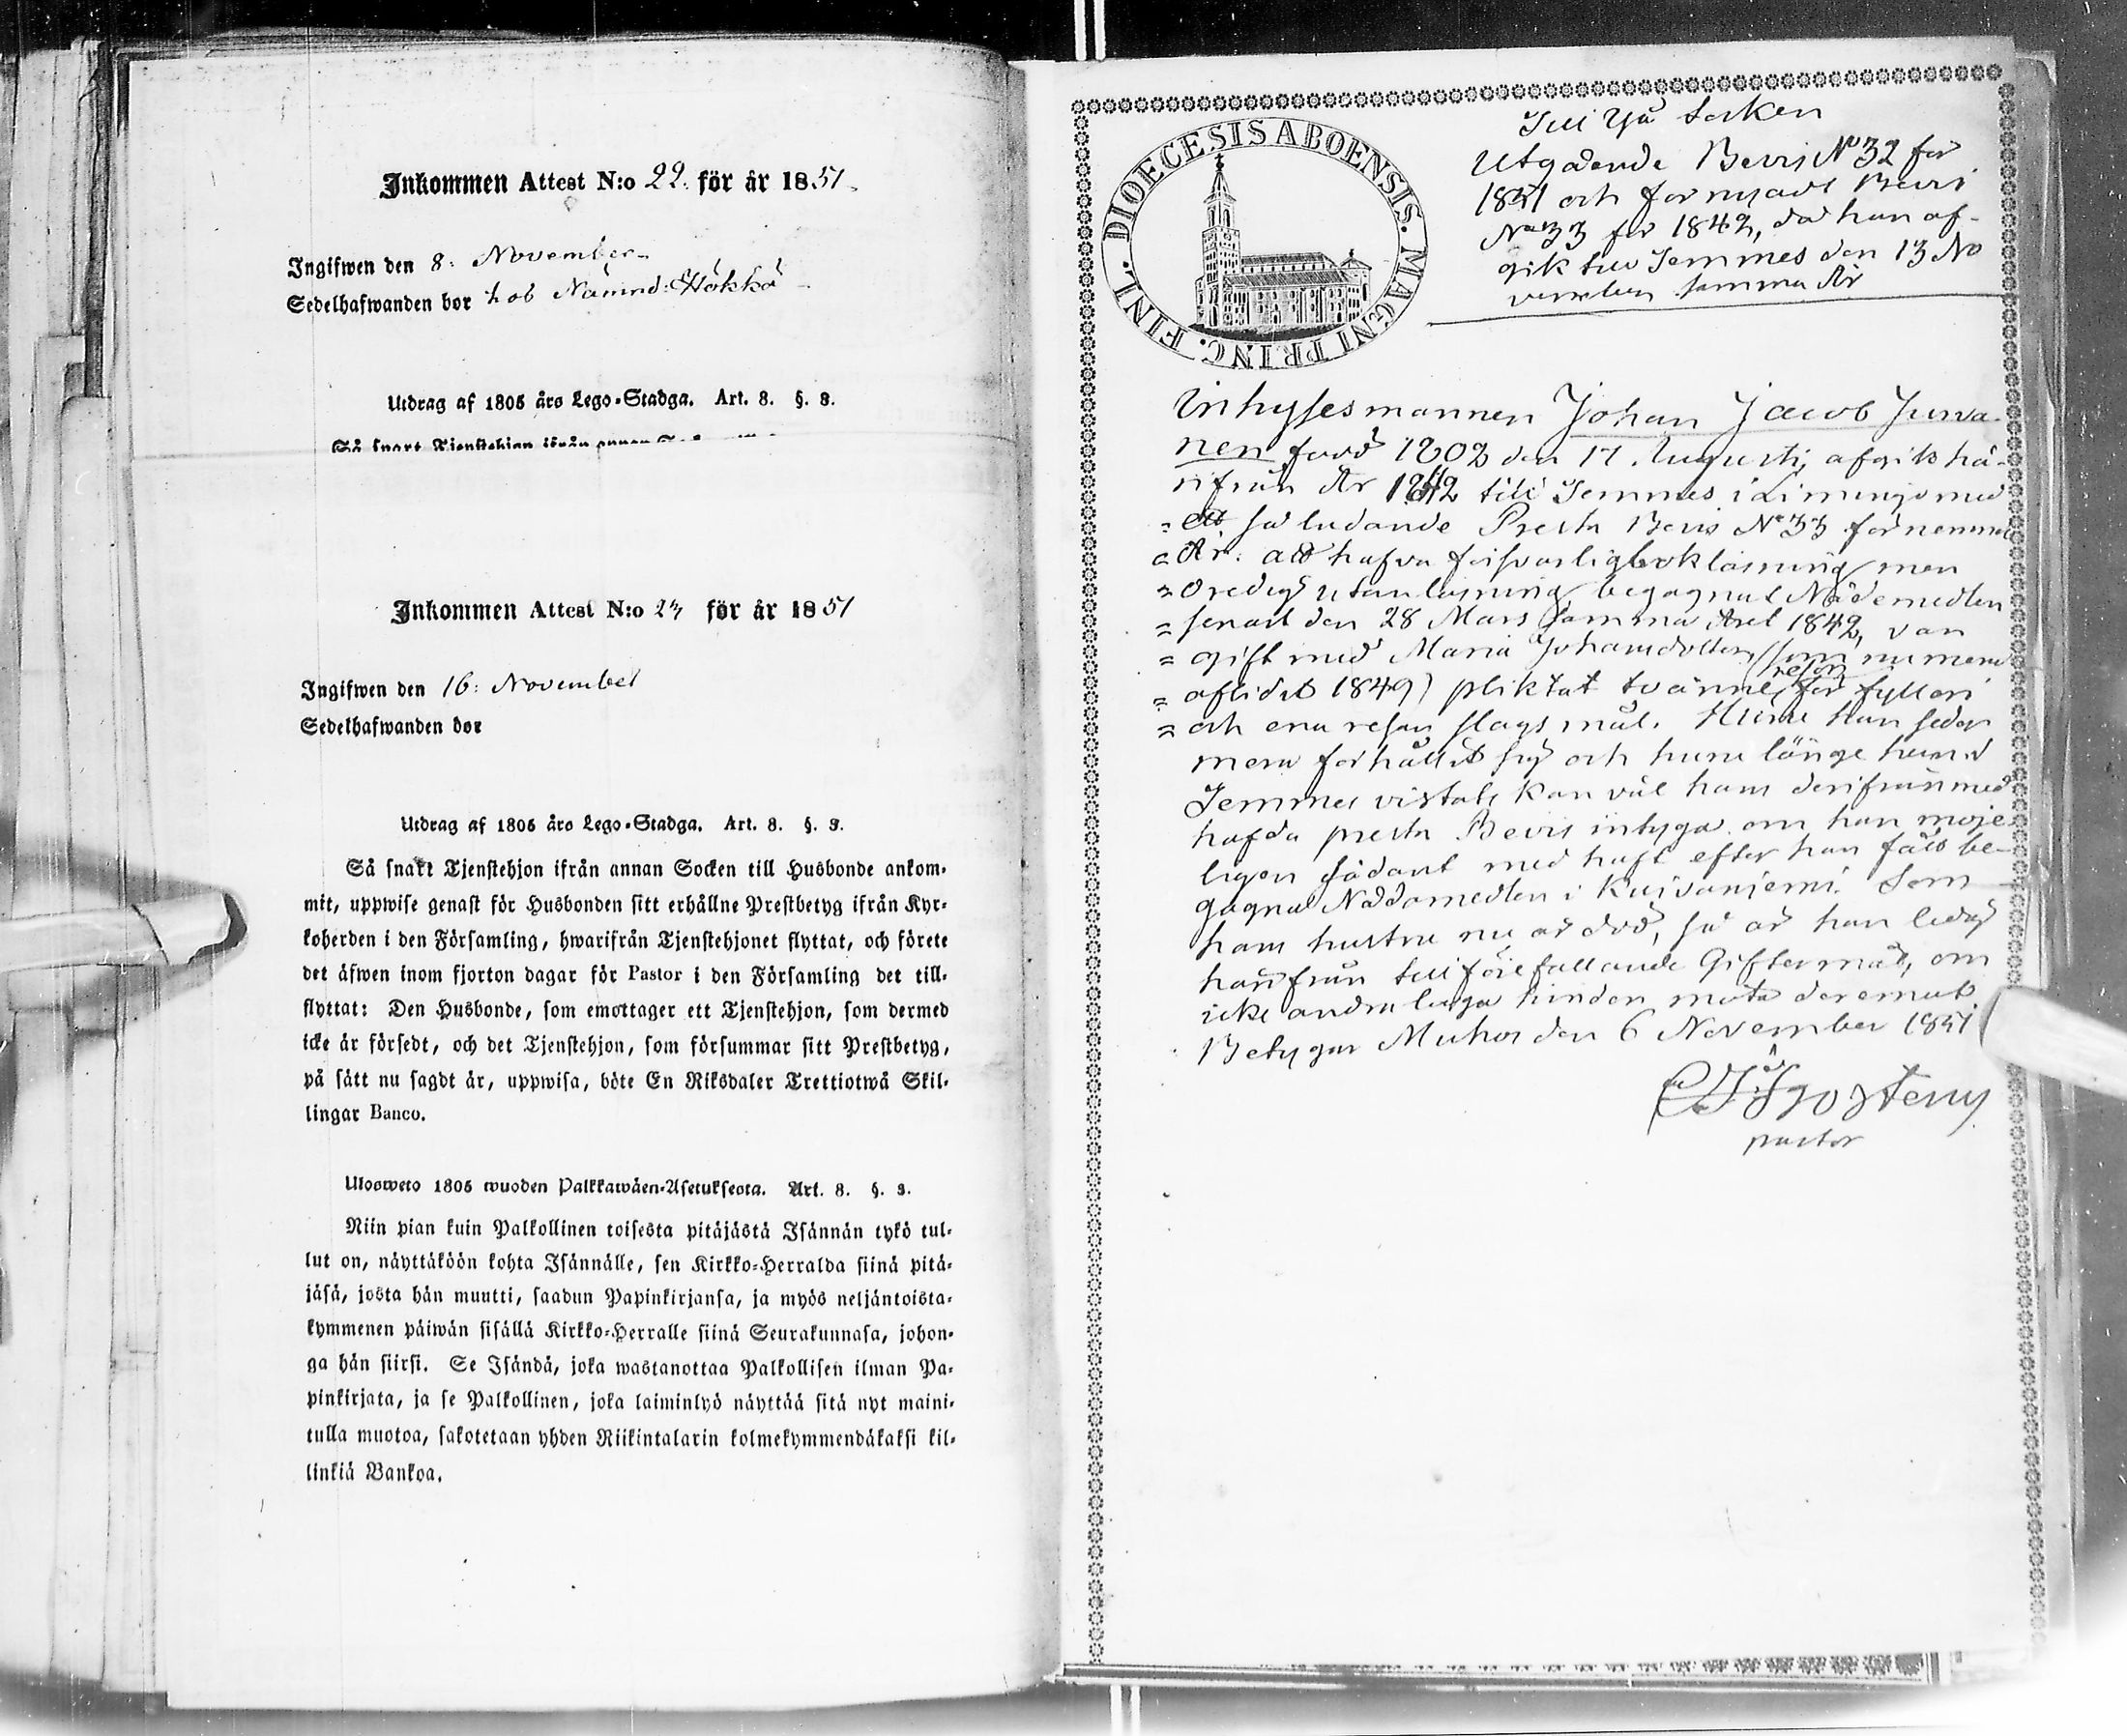 Inkommen Attest N:o 22. för år 1851.
Ingifwen den 8: November
Sedelhafwanden bor hos Nämnd: Hökkä
Utdrag af 1805 års Lego-Stadga. Art. 8. §. 3.
Så snart Tjenstehjon ifrån annan
Inkommen Attest N:o 23 för år 1851
Ingifwen den 16: November
Sedelhafwanden bor
Utdrag af 1805 års Lego-Stadga. Art. 8. §. 3.
Så snart Tjenstehjon ifrån annan Socken till Husbonde ankom-
mit, uppwise genast för Husbonden sitt erhållne Prestbetyg ifrån Kyr-
koherden i den Församling, hwarifrån Tjenstehjonet flyttat, och förete
det äfwen inom fjorton dagar för Pastor i den Församling det till-
flyttat: Den Husbonde, som emottager ett Tjenstehjon, som dermed
icke är försedt, och det Tjenstehjon, som försummar sitt Prestbetyg,
på sätt nu sagdt är, uppwisa, böte En Riksdaler Trettiotwå Skil-
lingar Banco.
Ulosweto 1805 wuoden Palkkawäen-Asetuksesta. Art. 8. §. 3.
Niin pian kuin Palkollinen toisesta pitäjästä Isännän tykö tul-
lut on, näyttäköön kohta Isännälle, sen Kirkko-Herralda siinä pitä-
jäsä, josta hän muutti, saadun Papinkirjansa, ja myös neljäntoista-
kymmenen päiwän sisällä Kirkko-Herralle siinä Seurakunnasa, johon-
ga hän siirsi. Se Isändä, joka wastanottaa Palkollisen ilman Pa-
pinkirjata, ja se Palkollinen, joka laiminlyö näyttää sitä nyt maini-
tulla muotoa, sakotetaan yhden Riikintalarin kolmekymmendäkaksi kil-
linkiä Bankoa.
DIOECESIS ABOENSIS. MAGNI PRINC. FINL.
Till Ijå Socken
Utgående Bevis No 32 för
1841 och förnyadt Bevis
No 33 för 1842, då han af-
gik till Temmes den 13 No
vember samma År
Inhysesmannen Johan Jacob Jurva-
nen född 1802 den 17 Augusti, afgik hä-
rifrån År 1842 till Temmes i Limingo med
ett så ludande Presta Bevis No 33 för nemnde
År: att hafva försvarlig bokläsning men
oredig utanläsning, begagnat Nådemedlen
senast den 28 Mars samma Året 1842, var
gift med Maria Johansdotter, (som numera
aflidit 1849) pliktat tvänne resor för fylleri
och ena resan slagsmål. Huru han seder
mera förhållit sig och huru länge han i
Temmes vistats kan väl hans derifrån med
hafda presta Bevis intyga om han möje-
ligen sådant med haft efter han fått be-
gagna Nådamedlen i Kuivaniemi. Som
hans hustru nu är död, så är han ledig
härifrån till förefallande Giftermål, om
icke andra laga hinder möta deremot.
Betygar Muhos den 6 November 1851
pastor